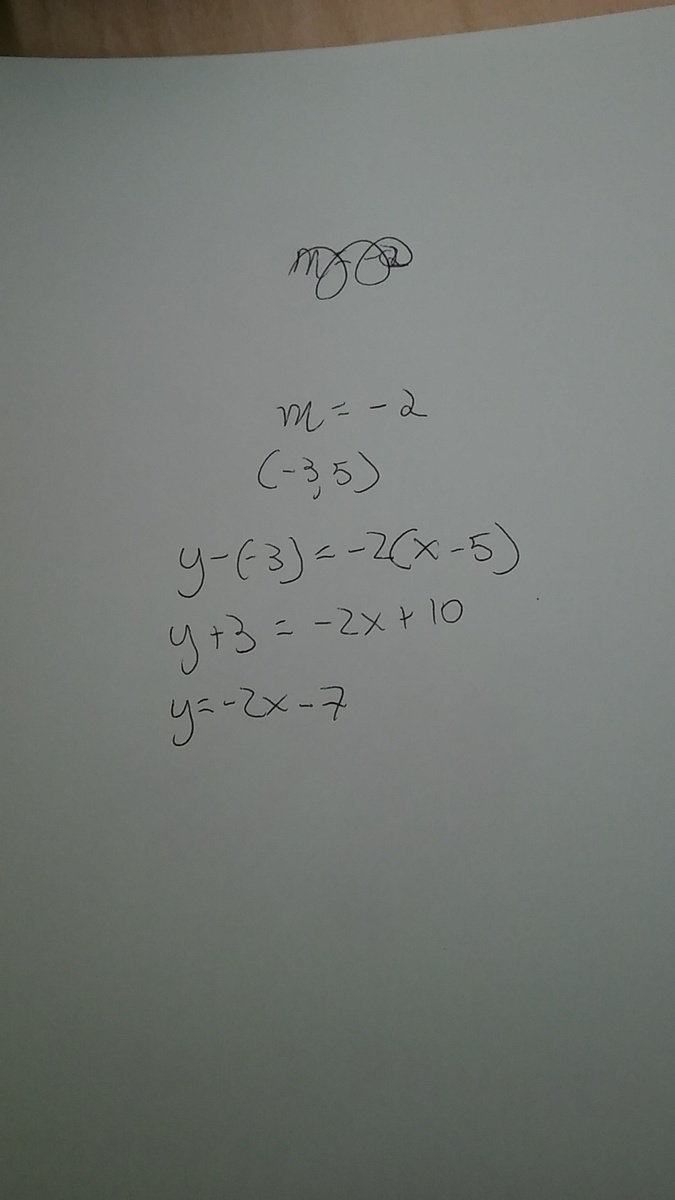 m = -2
(-3, 5)
y-(-3) = -2(x-5)
y+3 = -2x+10
y=-2x-7